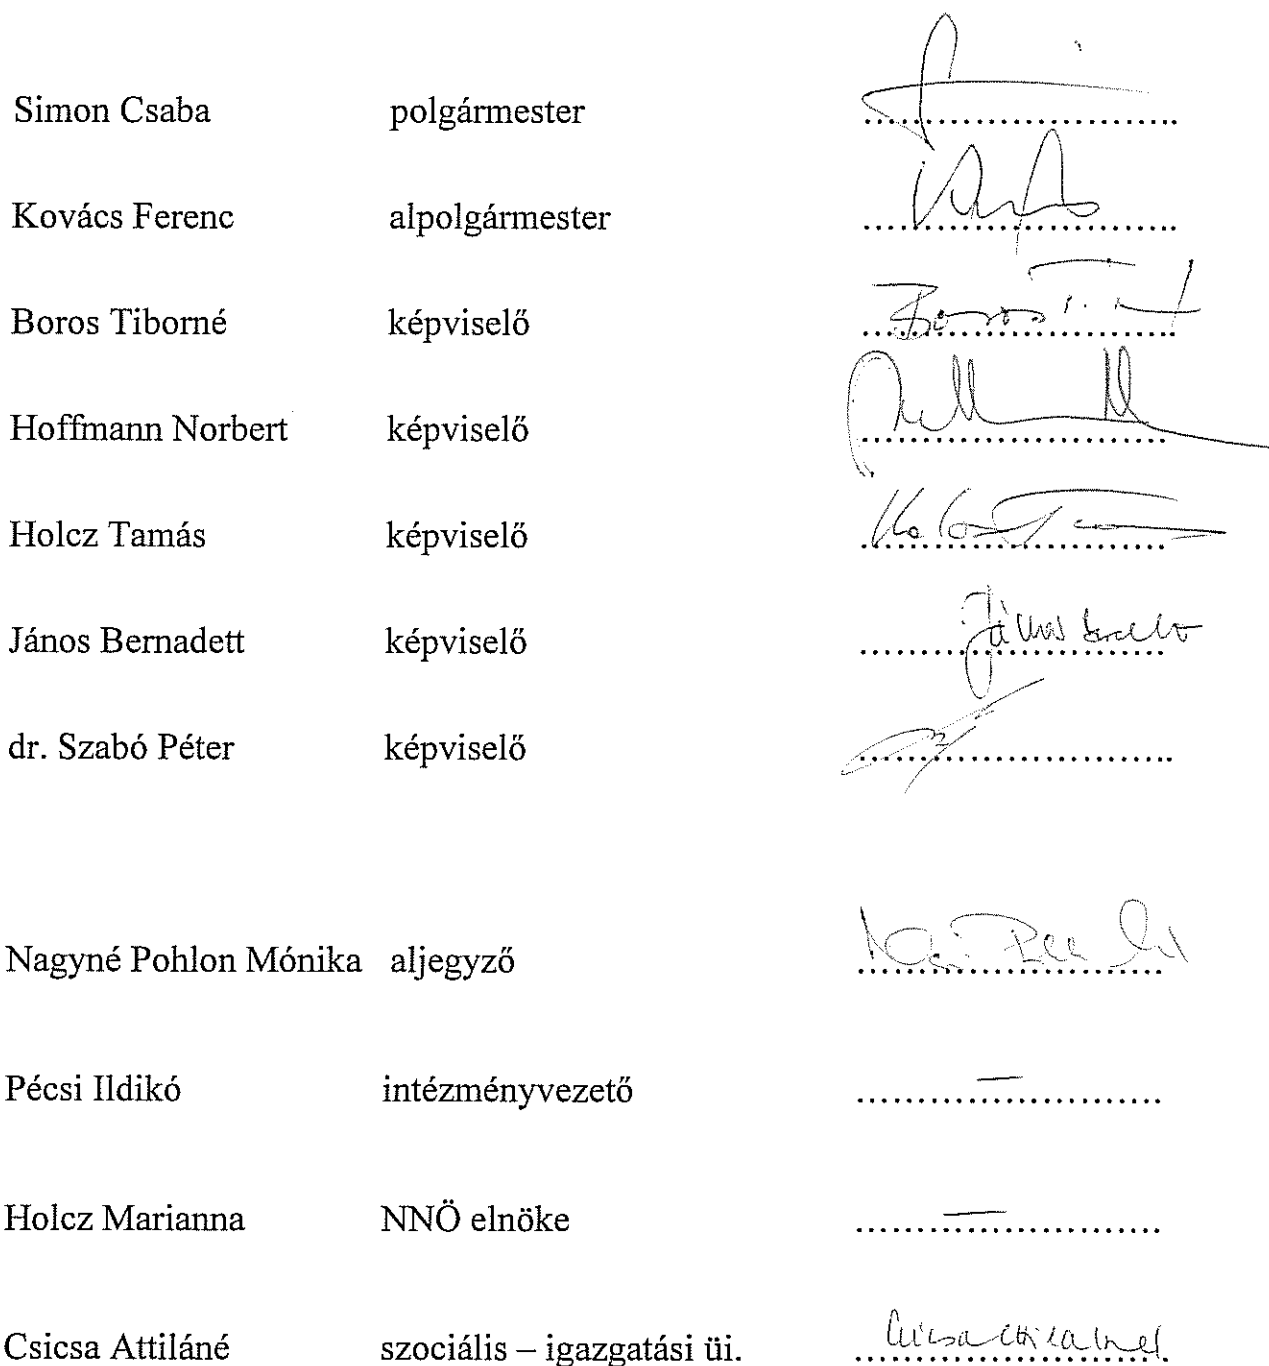 Simon Csaba polgármester
Kovács Ferenc alpolgármester
Boros Tiborné képviselő
Boros
Hoffmann Norbert képviselő
Holcz Tamás képviselő
János Bernadett képviselő
János
dr. Szabó Péter képviselő
Nagyné Pohlon Mónika aljegyző
Pécsi Ildikó intézményvezető –
Holcz Marianna NNÖ elnöke –
Csicsa Attiláné szociális – igazgatási üi.
Csicsa Attiláné